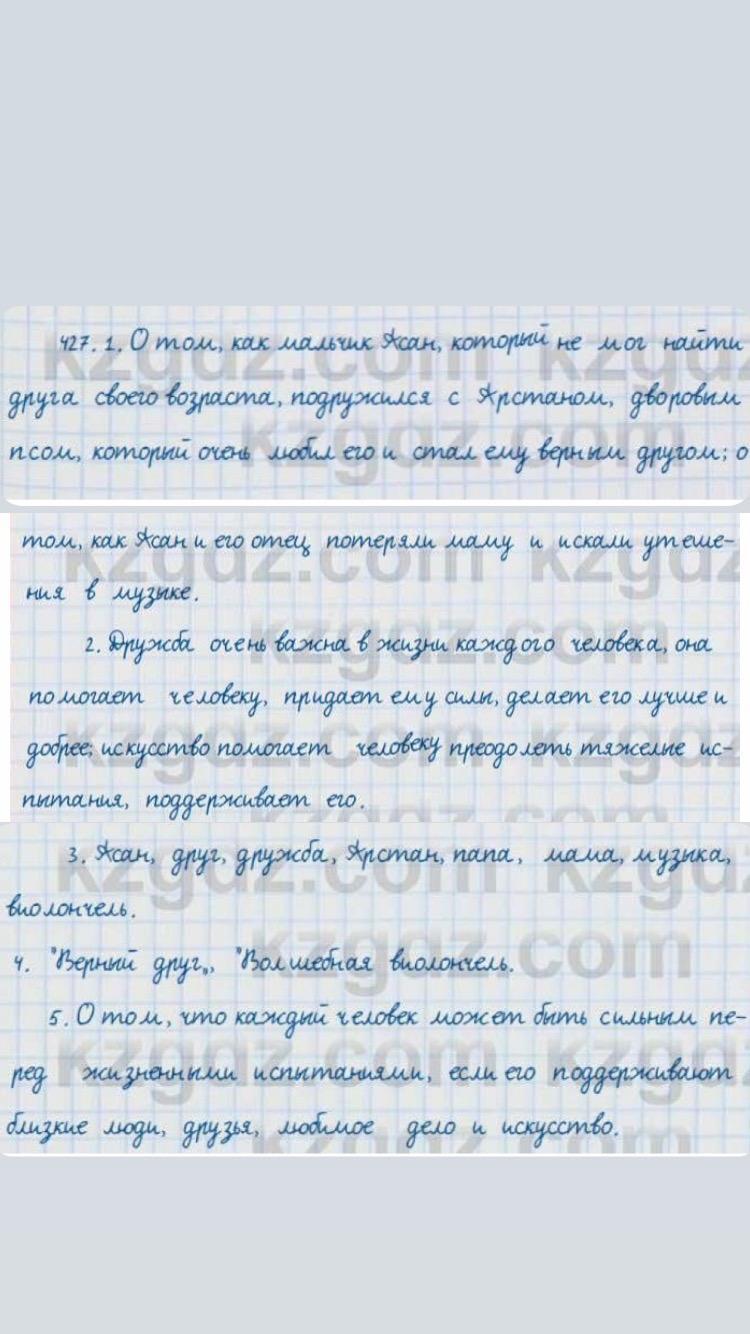 427. 1. О том, как мальчик Асан, который не мог найти
друга своего возраста, подружился с Арстаном, дворовым
псом, который очень любил его и стал ему верным другом; о
том, как Асан и его отец потеряли маму и искали утеше-
ния в музыке.
2. Дружба очень важна в жизни каждого человека, она
помогает человеку, придает ему силы, делает его лучше и
добрее; искусство помогает человеку преодолеть тяжелые ис-
пытания, поддерживает его.
3. Асан, друг, дружба, Арстан, папа, мама, музыка,
виолончель.
4. "Верный друг„, "Волшебная виолончель.
5. О том, что каждый человек может быть сильным пе-
ред жизненными испытаниями, если его поддерживают
близкие люди, друзья, любимое дело и искусство.
kzgdz.com